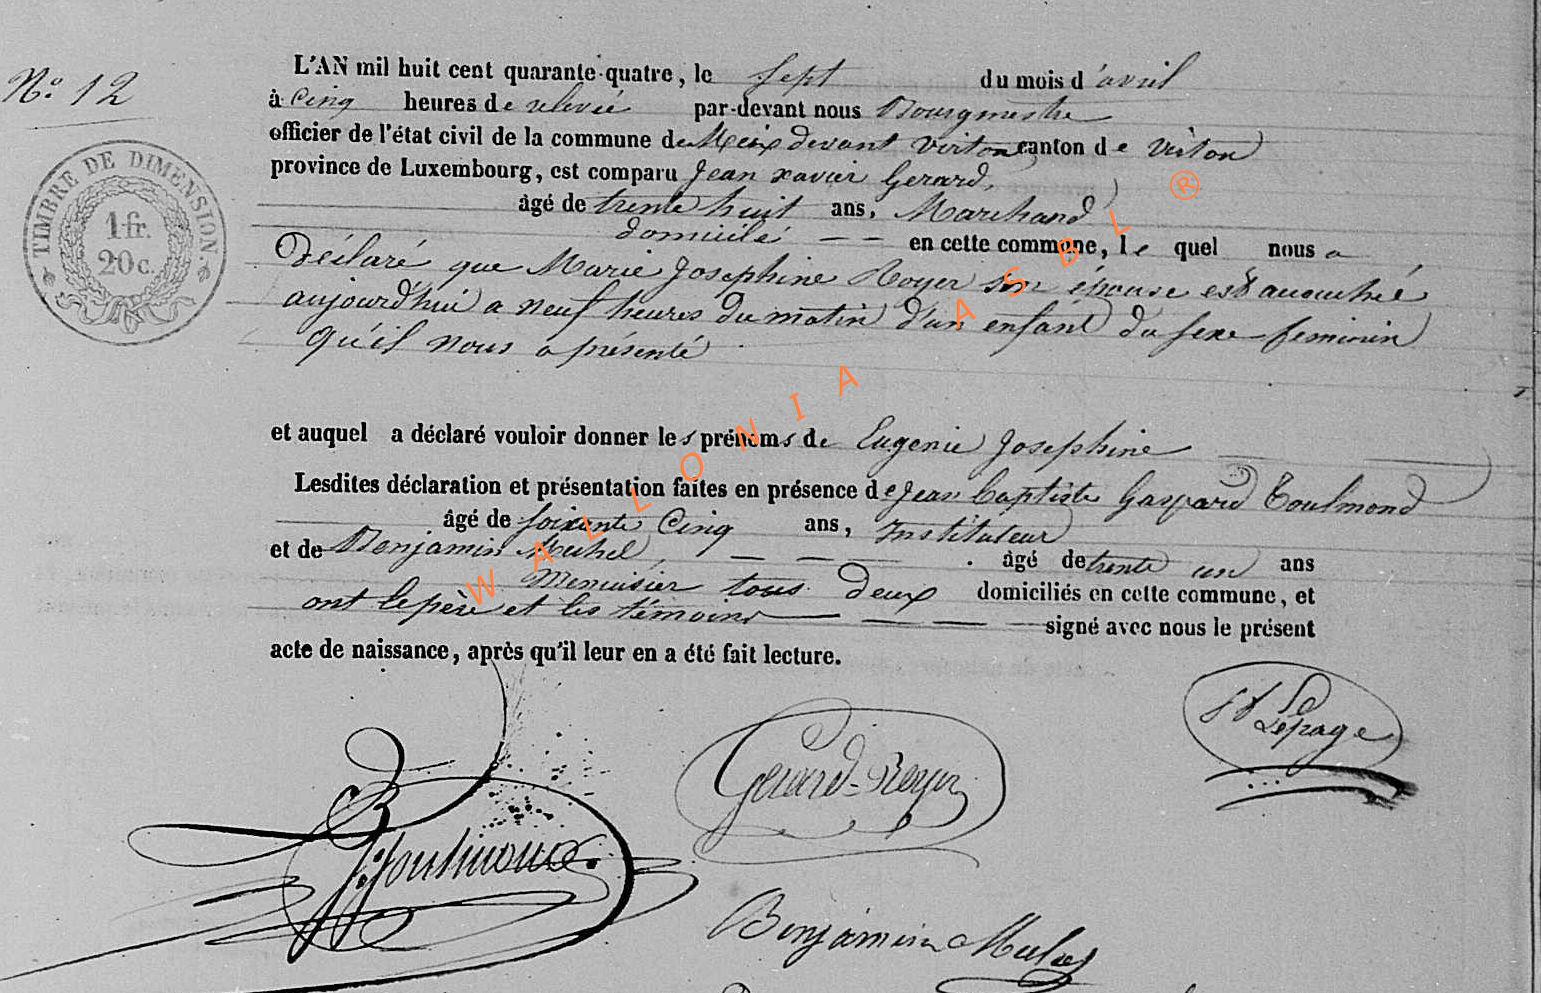 No. 12
L'AN mil huit cent quarante-quatre, le sept du mois d'avril
à Cinq heures de relevée par-devant nous Bourgmestre
officier de l'état civil de la commune de Meix devant virton canton de virton
province de Luxembourg, est comparu Jean xavier Gerard,
âgé de trente huit ans, Marchand
domicilé — — en cette commune, le quel nous a
Déclaré que Marie Josephine Royer son épouse est accouchée
aujourd'hui a neuf heures du matin d'un enfant du sexe feminin
qu'il nous a présenté
et auquel a déclaré vouloir donner les prénoms de Eugenie Josephine
Lesdites déclaration et présentation faites en présence de Jean Baptiste Gaspard Toulmond
âgé de soixante Cinq ans, Instituteur
et de Benjamin Michel, — — — . âgé de trente un ans
Menuisier tous deux domiciliés en cette commune, et
ont le père et les témoins — — — signé avec nous le présent
acte de naissance, après qu'il leur en a été fait lecture.
TIMBRE DE DIMENSION.
1 fr.
20 c.
WALLONIA ASBL ®
Lepage
Gerard-Royer
Toulmond.
Benjamin